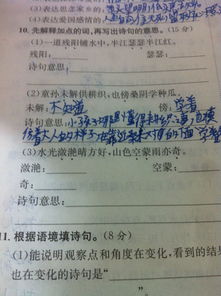 (3)表达思念家乡的
(4)表达爱国感情的
10. 先解释加点的词,再写出诗句的意思。(15分)
(1)一道残阳铺水中,半江瑟瑟半江红。
残阳: 瑟瑟:
诗句意思:
(2)童孙未解供耕织,也傍桑阴学种瓜。
未解: 不知道 傍: 学着
诗句意思: 小孩子
(3)水光潋滟晴方好,山色空蒙雨亦奇。
潋滟: 空蒙:
奇:
诗句意思:
11. 根据语境填诗句。(8分)
(1)能说明观察点和角度在变化,看到的结
也在变化的诗句是“